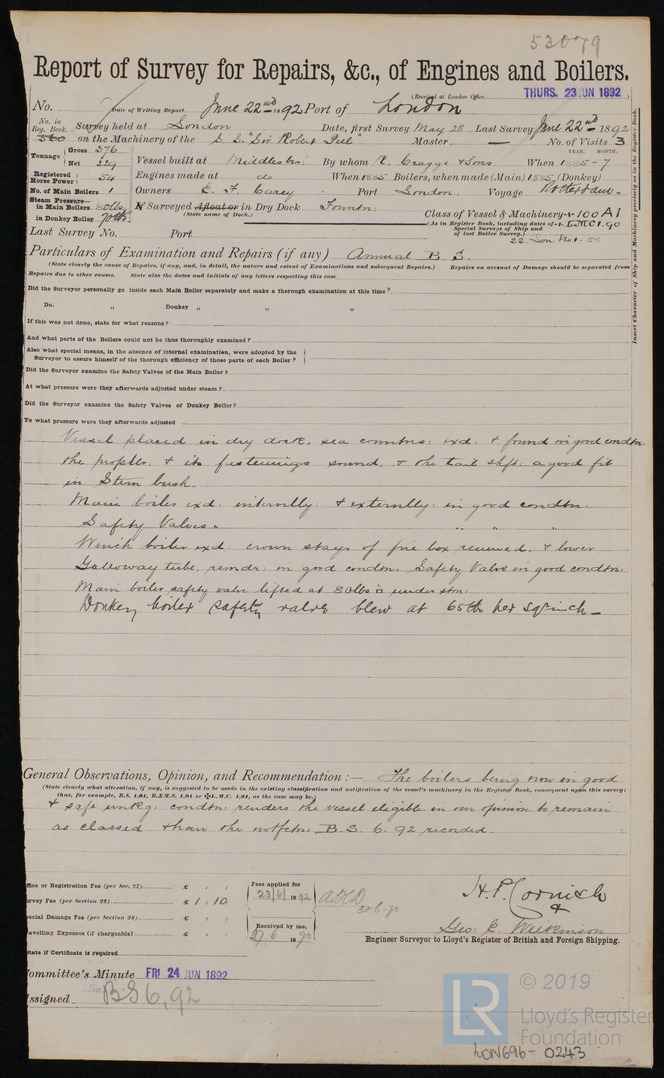 53079
Report of Survey for Repairs, &c., of Engines and Boilers.
(Received at London Office THURS. 23 JUN 1892)
No. Date of Writing Report June 22nd 1892 Port of London
No. in Reg. Book. Survey held at London Date, first Survey May 28 Last Survey June 22nd 1892
560 on the Machinery of the S.S. "Sir Robert Peel" Master — No. of Visits 3
Tonnage { Gross 376 Net 329 Vessel built at Middlesbro: By whom R. Craggs & Sons When 1885-7
YEAR. MONTH.
Registered Horse Power: 54 Engines made at do When 1885 Boilers, when made (Main) 1885 (Donkey)
No. of Main Boilers 1 Owners E. F. Carey Port London. Voyage Rotterdam.
Steam Pressure— in Main Boilers 80lbs If Surveyed Afloat or in Dry Dock Fountn:
(State name of Dock.)
in Donkey Boiler 70lbs. Class of Vessel & Machinery 100A1
(As in Register Book, including dates of Special Surveys of Ship and of last Boiler Survey.) LMC 1.90
Last Survey No. Port
Insert Character of Ship and Machinery precisely as in the Register Book.
Particulars of Examination and Repairs (if any) Annual B. S.
(State clearly the cause of Repairs, if any, and, in detail, the nature and extent of Examinations and subsequent Repairs.) Repairs on account of Damage should be separated from
Repairs due to other causes. State also the dates and initials of any letters respecting this case
Did the Surveyor personally go inside each Main Boiler separately and make a thorough examination at this time?
Do. " Donkey " " "
If this was not done, state for what reasons?
And what parts of the Boilers could not be thus thoroughly examined?
Also what special means, in the absence of internal examination, were adopted by the
Surveyor to assure himself of the thorough efficiency of those parts of each Boiler?
Did the Surveyor examine the Safety Valves of the Main Boiler?
At what pressure were they afterwards adjusted under steam?
Did the Surveyor examine the Safety Valves of Donkey Boiler?
To what pressure were they afterwards adjusted
Vessel placed in dry dock, sea conntns: exd: & found in good condtn:
the proplr: & its fastenings sound, & the tail shft: a good fit
in Stern bush.
Main boiler exd: internlly: & externlly: in good condtn:
Safety Valves " " " "
Winch boiler exd: crown stays of fire box renewed, & lower
Galloway tube, remdr: in good condtn: Safety Valve in good condtn:
Main boiler safety valve lifted at 80lbs □" under stm:
Donkey boiler safety valve blew at 65lb per sq: inch —
General Observations, Opinion, and Recommendation:— The boilers being now in good
(State clearly what alteration, if any, is suggested to be made in the existing classification and notification of the vessel's machinery in the Register Book, consequent upon this survey:
thus, for example, B.S. 1,94, B.&M.S. 1,94 or ✠L.M.C. 1,94, as the case may be.)
& safe wrkg: condtn: renders the vessel eligible in our opinion to remain
as classed & have the notfctn: B.S. 6. 92 recorded.
Office or Registration Fee (per Sec. 27) £ : :
Survey Fee (per Section 28) £ 1 : 10.
Special Damage Fee (per Section 28) £ : :
Travelling Expenses (if chargeable) £ : :
Fees applied for
23/6/1892
Received by me,
27.6 1892
H. P. Cornish
&
Geo: C. Wilkinson
Engineer Surveyor to Lloyd's Register of British and Foreign Shipping.
State if Certificate is required
Committee's Minute FRI 24 JUN 1892
Assigned BS 6, 92
LR
© 2019
Lloyd's Register
Foundation
LON696-0243